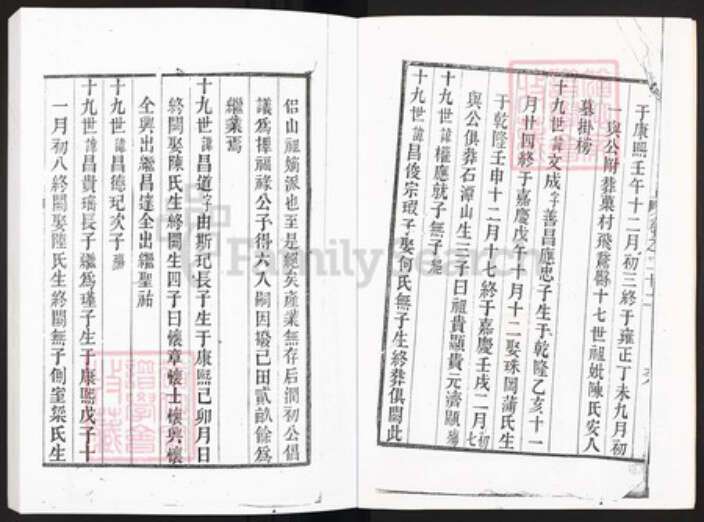 于康熙壬午十二月初三終于雍正丁未九月初
一與公附葬菓村飛鵞嶺十七世祖妣陳氏安人
墓掛榜
十九世諱文成字善昌應忠子生于乾隆乙亥十一
月廿四終于嘉慶戊午十月十二娶珠岡蒲氏生
于乾隆壬申十二月十七終于嘉慶壬戌二月初七
與公俱葬石潭山生三子曰祖貴顯貴元濟顯
十九世諱權應就子無子
十九世諱昌俊宗瑕子娶何氏無子生終葬俱闕此
侶山祖嫡派也至是絕矣產業無存后潤初公倡
議為擇福祿公子得六入嗣因撥己田貳畝餘為
繼業焉
十九世諱昌道字由斯玘長子生于康熙己卯月日
終闕娶陳氏生終闕生四子曰懷章懷士懷興懷
全興出繼昌達全出繼聖祐
十九世諱昌德玘次子
十九世諱昌貴瑤長子繼為瑾子生于康熙戊子十
一月初八終闕娶陸氏生終闕無子側室梁氏生
FamilySearch